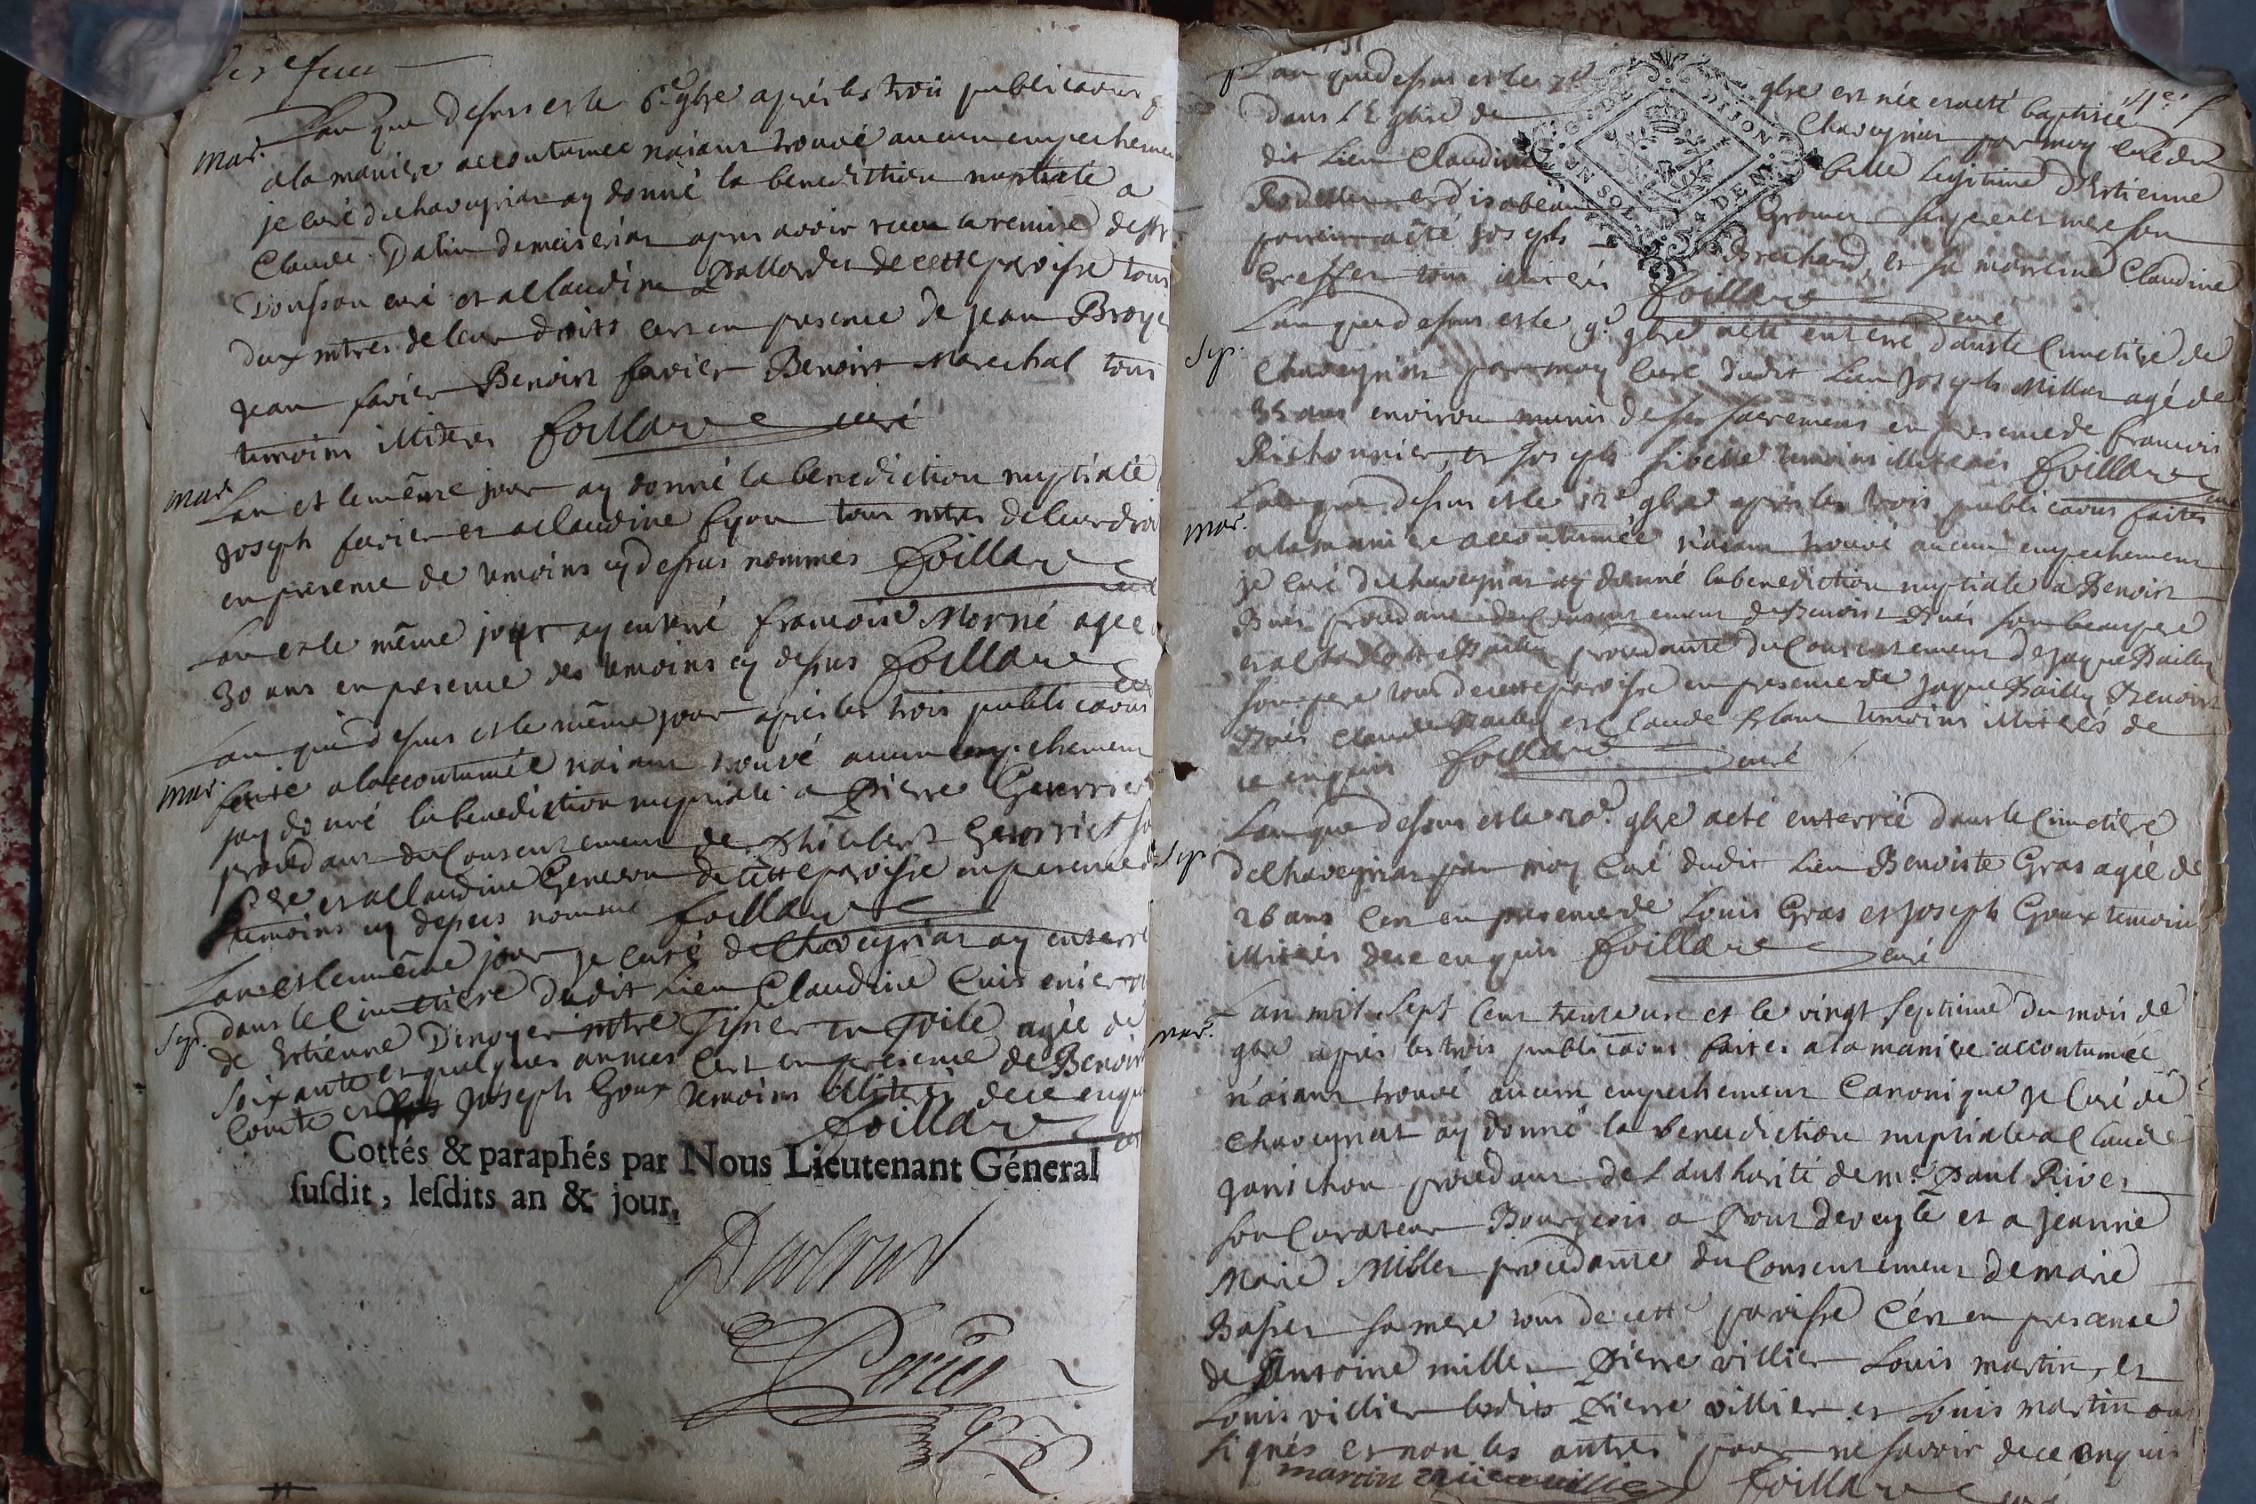 mar. Lan que desus est le 6e gbre après les trois publications
a la manière accoutumée naiant trouvé aucun empechement
je curé de chaveyriat ay donné la benediction nuptiale a
Claude apres avoir receu la remise
curé et a Claudine de cette paroisse tous
deux mtres de leur droits cest en presence de Jean Broye
Jean favier Benoist favier Benoist Marechal tous
temoins illiteres foillard curé
mar. Lan et le même jour ay donné la benediction nuptiale
Joseph favier et a Claudine fyon tous mtres de leur droi
en presence de temoins cy desus nommes foillard
curé
Lan et le même jour ay enterré francoise Morné agee
30 ans en presence des temoins cy desus foillard
curé
Lan que desus et le même jour après les trois publications
mar. faite a la accoutumée naiant trouvé aucun empechement
jay donné la benediction nuptiale a Pierre Guerrier
procedant du Consentement de Philibert Guerrier so
pere et a Claudine de cette paroisse en presence de
temoins cy desus nomme foillard
Lan et le même jour je curé de Chaveyriat ay enterré
sep. dans le Cimetiere dudit Lieu Claudine
de Estienne Dinoyer mtre Tisser en Toile agée de
soixante et quelques années cest en presence de Benoist
Comte et Joseph Goux temoins illiteres de ce enquis
foillard
Cottés & paraphés par Nous Lieutenant Géneral
susdit, lesdits an & jour,
1731
Lan que desus et le 7e gbre est née et a eté baptisée
dans l'Eglise de Chaveyriat par moy curé du
dit Lieu Claudine fille legitime d'Estienne
et d'isabeau ses pere et mere son
parrain a eté Joseph Brechard, et sa marreine Claudine
Greffet tous illiterés foillard curé
G. DE DIJON
UN SOL 4 DEN.
sep. Lan que desus et le 9e gbre a eté enterré dans le Cimetiere de
Chaveyriat par moy Curé dudit Lieu Joseph Millet agé de
35 ans environ munis de ses sacremens en presence de francois
Pichonnier, et Joseph temoins illiterés foillard
curé
mar. Lan que desus et le 12e gbre après les trois publications faites
a la maniere accoutumée n'aiant trouvé aucun empechement
je curé de chaveyriat ay donné la benediction nuptiale a Benoist
procedant du Consentement de Benoist son beaupere
et a Bailly procedante du Consentement de Jaque Bailly
son pere tous de cette paroisse en presence de Jaque Bailly Benoist
Claude Bailly et Claude temoins illiterés de
ce enquis foillard curé
sep. Lan que desus et le 20e gbre a eté enterrée dans le Cimetière
de Chaveyriat par moy Curé dudit Lieu Benoiste Gras agée de
26 ans Cest en presence de Louis Gras et Joseph Goux temoins
illiterés de ce enquis foillard curé
mar. Lan mil Sept Cent trente un et le vingt septieme du mois de
gbre après les trois publications faites a la maniere accoutumée
n'aiant trouvé aucun empechement Canonique je Curé de
Chaveyriat ay donné la benediction nuptiale a Claude
Janichon procedant de Lauthorité de mre Paul River
son Curateur Bourgeois a Pont deveyle et a Jeanne
Marie Millet procedante du Consentement de marie
Basset sa mere tous de cette paroisse C'est en presence
de Antoine millet Pierre villier Louis martin, et
Louis villier lesdits Pierre villier et Louis martin ont
signés et non les autres pour ne savoir de ce enquis
martin villier foillard